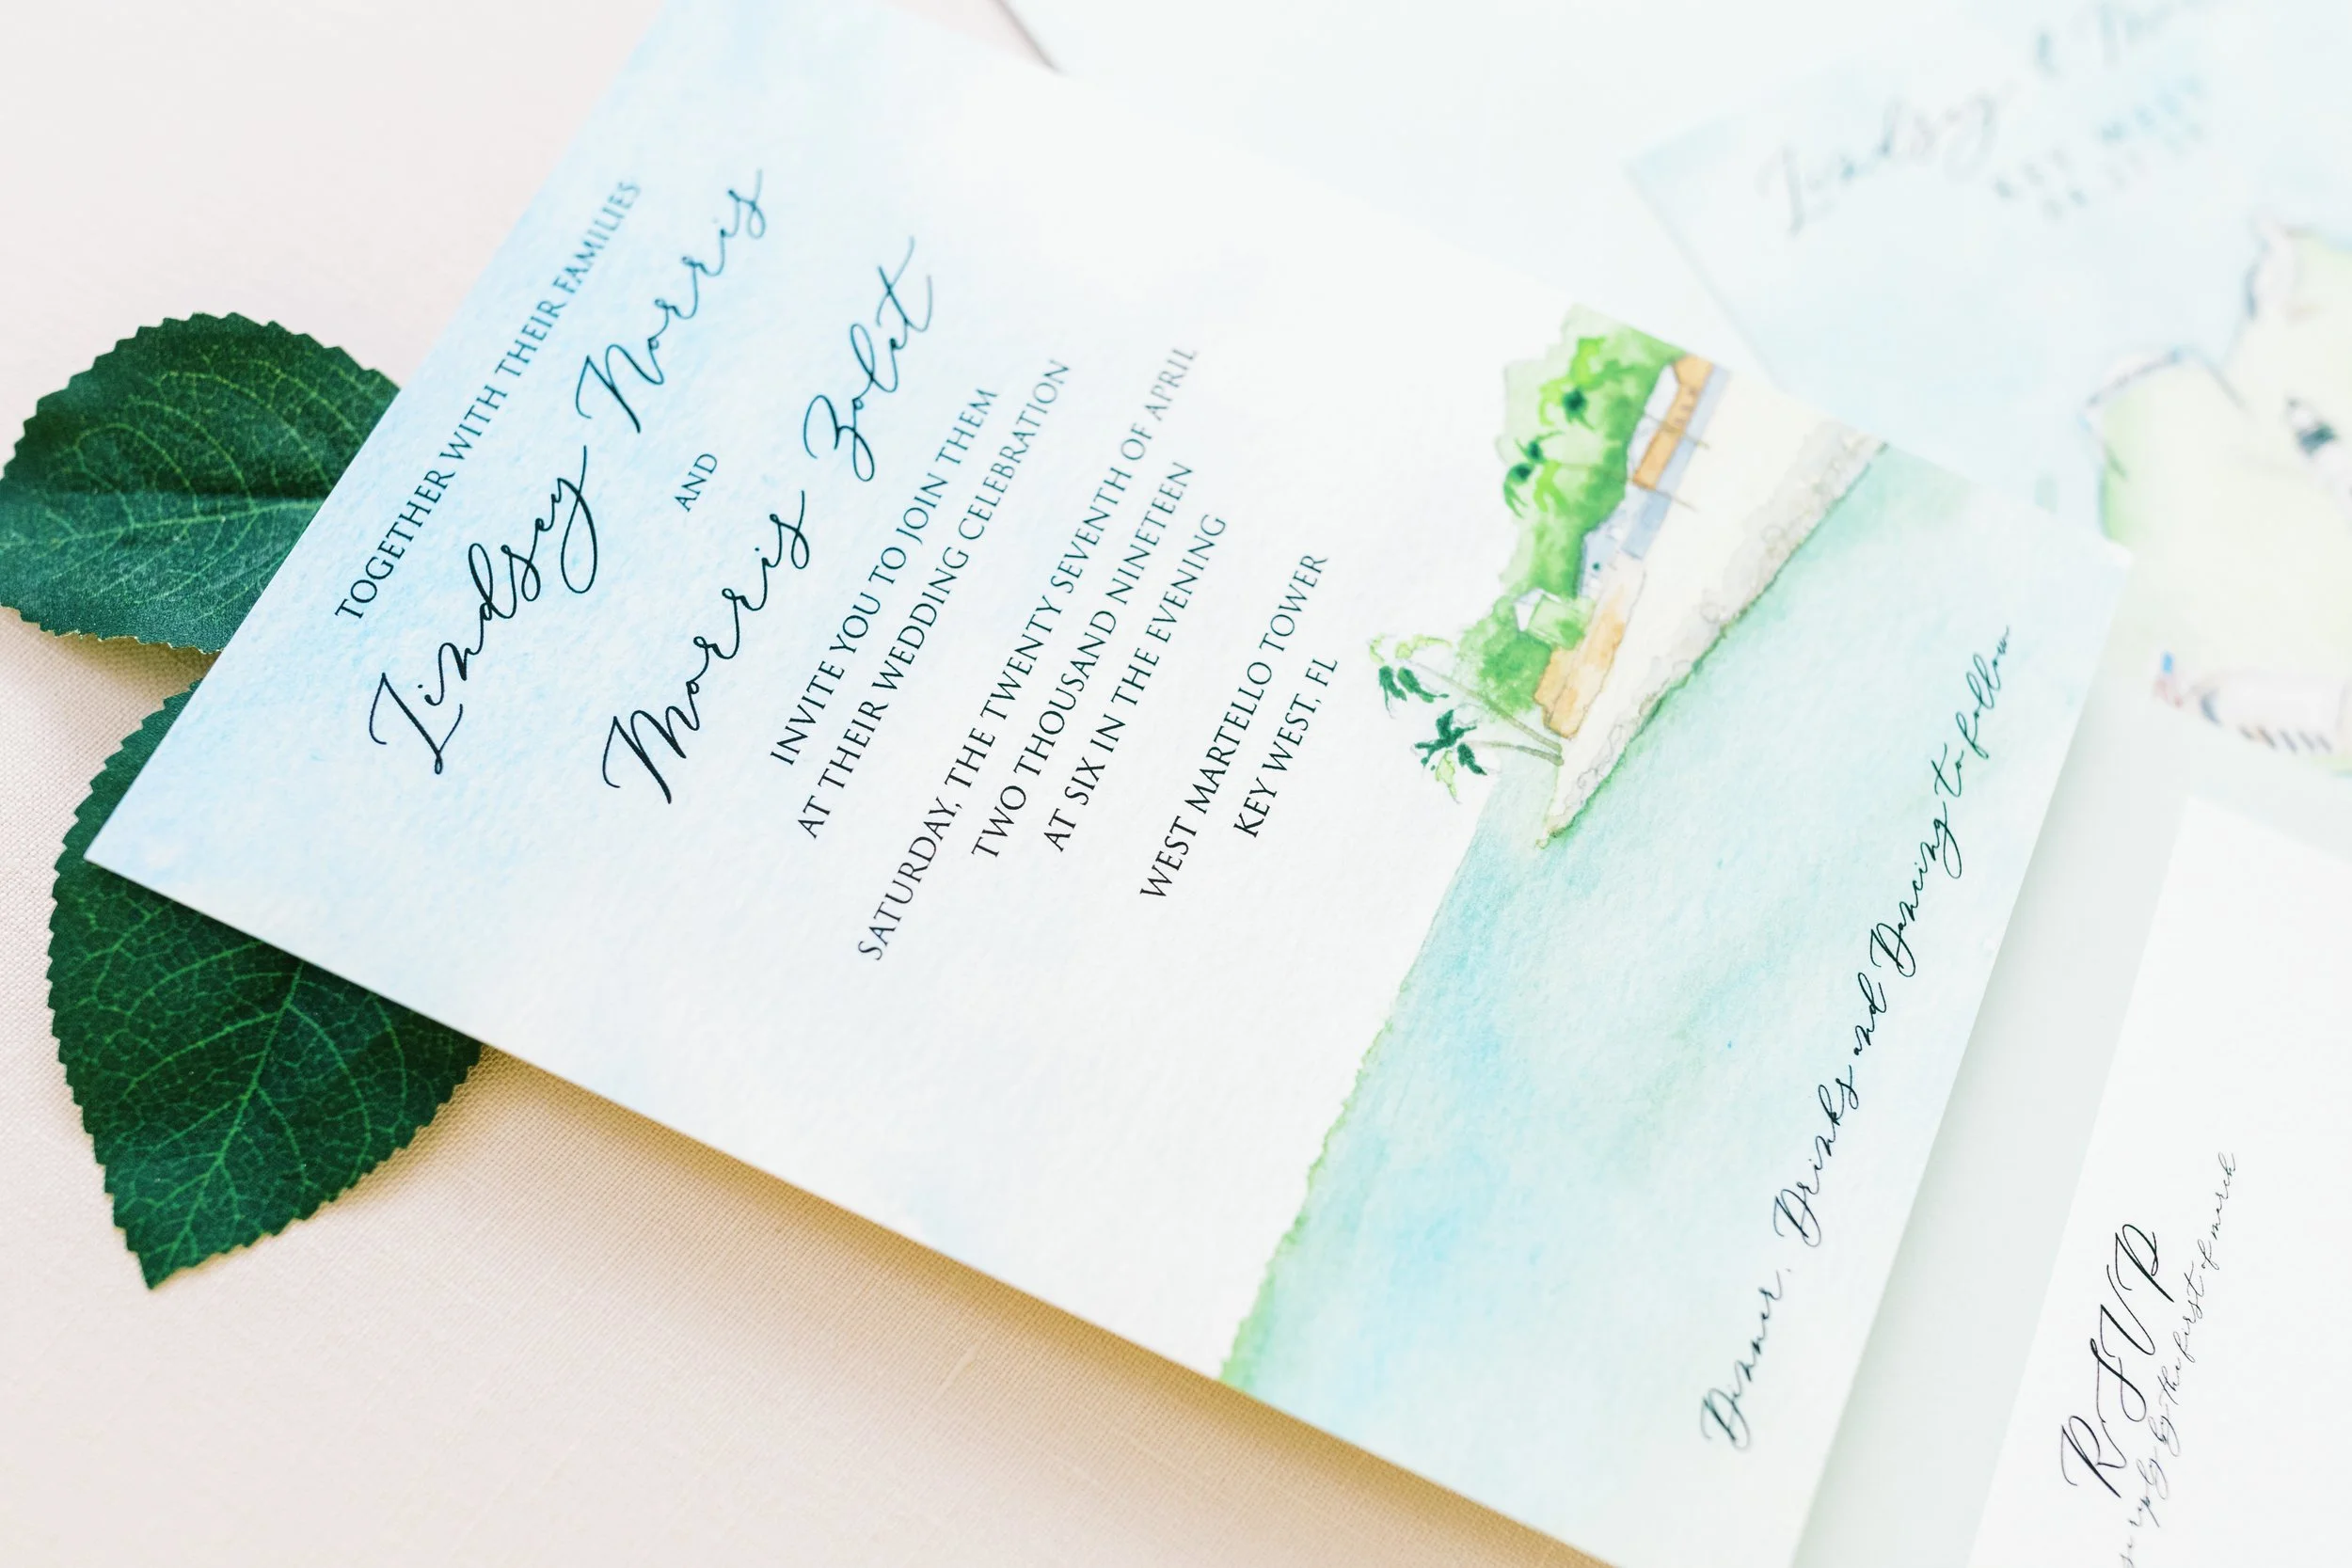 TOGETHER WITH THEIR FAMILIES
Lindsey Norris
AND
Morris Zolet
INVITE YOU TO JOIN THEM
AT THEIR WEDDING CELEBRATION
SATURDAY, THE TWENTY SEVENTH OF APRIL
TWO THOUSAND NINETEEN
AT SIX IN THE EVENING
WEST MARTELLO TOWER
KEY WEST, FL
Dinner, Drinks and Dancing to follow
Lindsey &
RSVP
reply by the first of march